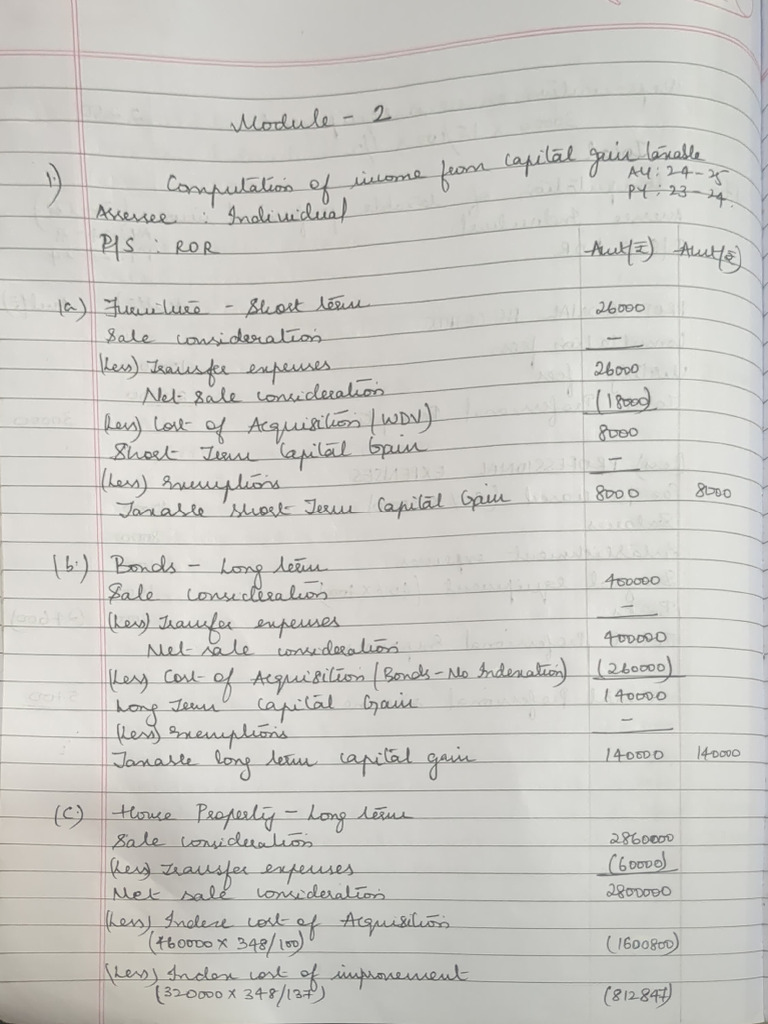 Module - 2
1.) Computation of income from capital gain taxable
AY: 24-25
Assessee : Individual PY : 23-24.
P/S : ROR Amt(₹) Amt(₹)
(a) Furniture - Short term 26000
Sale consideration —
(Less) Transfer expenses 26000
Net sale consideration (18000)
(Less) Cost of Acquisition (WDV) 8000
Short Term Capital Gain —
(Less) Exemptions
Taxable Short Term Capital Gain 8000 8000
(b.) Bonds - Long term
Sale consideration 400000
(Less) Transfer expenses —
Net sale consideration 400000
(Less) Cost of Acquisition (Bonds - No Indexation) (260000)
Long Term Capital Gain 140000
(Less) Exemptions —
Taxable long term capital gain 140000 140000
(C.) House Property - Long term
Sale consideration 2860000
(Less) Transfer expenses (60000)
Net sale consideration 2800000
(Less) Index cost of Acquisition
(460000 X 348/100) (1600800)
(Less) Index cost of improvement
(320000 X 348/137) (812847)